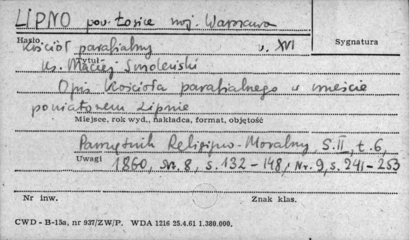 LIPNO pow. Łosice woj. Warszawa
Hasło
Kościół parafialny w. XVI
Sygnatura
Tytuł
Ks. Maciej Smoleński
Opis Kościoła parafialnego w mieście
powiatowem Lipnie
Miejsce, rok wyd., nakładca, format, objętość
Pamiętnik Religijno-Moralny, S. II, t. 6,
Uwagi
1860, Nr. 8, s. 132-148, Nr. 9, s. 241-253
Nr inw.
Znak klas.
CWD - B-15a, nr 937/ZW/P. WDA 1216 25.4.61 1.380.000.